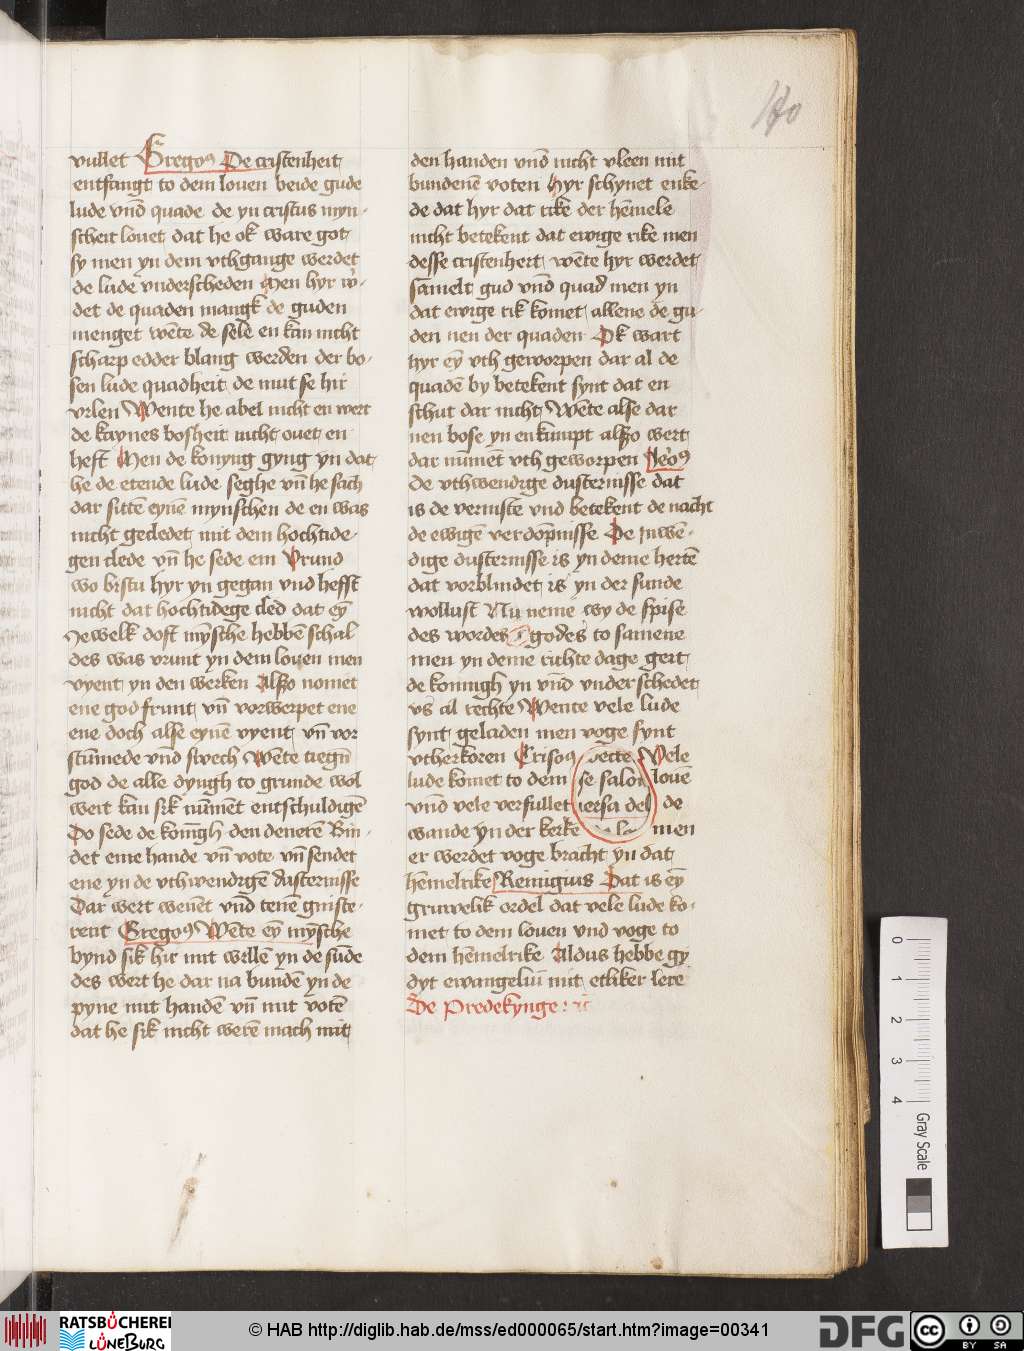 140
vullet Gregoꝰ De cristenheit
entfangt to dem louen beide gude
lude vnd̄ quade de yn cristus myn-
scheit louet dat he ok ware got
sy men yn dem vthgange werdet
de lude vnderscheden Men hyr w̉-
det de quaden mangk de guden
menget wēte de sele en kan nicht
scharp edder blang werden der bo-
sen lude quadheit de mut se hir
vrlen Wente he abel nicht en wert
de kaynes bosheit nicht ouet en
heft Men de konyng gyng yn dat
he de etende lude seghe vn̄ he sach
dar sittē eynē mynschen de en was
nicht gecledet mit dem hochtide-
gen clede vn̄ he sede em Vrund
wo bistu hyr yn gegan vnd hefst
nicht dat hochtidege cled dat eȳ
Jewelk dost mȳsche hebbē schal
des was vrunt yn dem louen men
vyent yn den werken Alßo nomet
ene god frunt vn̄ vorwerpet ene
ene doch alse eynē vyent vn̄ vor
stūmede vnd swech Wēte tiegn̄
god de alle dyngh to grunde wol
weit kan sik nūmēt entschuldigē
Do sede de konīgh den denerē Bin-
det eme hande vn̄ vote vn̄ sendet
ene yn de vthwendigē dusternisse
Dar wert wenēt vnd̄ tenē gniste-
rent Gregoꝰ Wēte eȳ mȳsche
bynd sik hir mit willē yn de sūde
des wert he dar na bundē yn de
pyne mit handē vn̄ mit votē
dat he sik nicht werē mach mit
den handen vnd̄ nicht vleen mit
bundenē voten Hyr schynet enke-
de dat hyr dat rike der hēmele
nicht betekent dat ewige rike men
desse cristenheit wēte hyr werdet
samelt gud vnd̄ quad men yn
dat ewige rik komet allene de gu-
den nen der quaden Ok wart
hyr eȳ vth geworpen dar al de
quadē by betekent synt dat en
schut dar nicht Wēte alse dar
nen bose yn en kumpt alßo wert
dar nūmēt vth geworpen Jeroꝰ
de vthwendige dusternisse dat
is de vernistē vnd betekent de nacht
de ewigē verdōpnisse De Inwē-
dige dusternisse is yn deme hertē
dat vorblindet is yn der sunde
wollust Nu neme wy de spise
des wordes godes to samene
men yn deme richte dage geit
de konnigh yn vnd̄ vnderschedet
vs al rechte Wente vele lude
synt geladen men voge synt
vtherkoren Crisoꝰ Vele
lude komet to dem louē
vnd̄ vele verfullet de
wande yn der kerke men
er werdet voge bracht yn dat
hēmelrike Remigius Dat is eȳ
gruwelik ordel dat vele lude ko-
met to dem louen vnd voge to
dem hēmelrike Aldus hebbe gy
dyt ewangeliū mit etliker lere
De Predekynge :
0 1 2 3 4 Gray Scale
RATSBÜCHEREI
LÜNEBURG
© HAB http://diglib.hab.de/mss/ed000065/start.htm?image=00341
DFG
cc BY SA